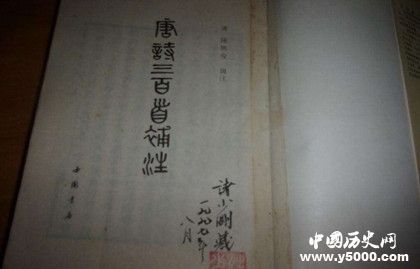 唐詩三百首補注
清 陳婉俊 補注
中国書店
諸少剛藏
一九九七年
八月
中国历史网
www.y5000.com